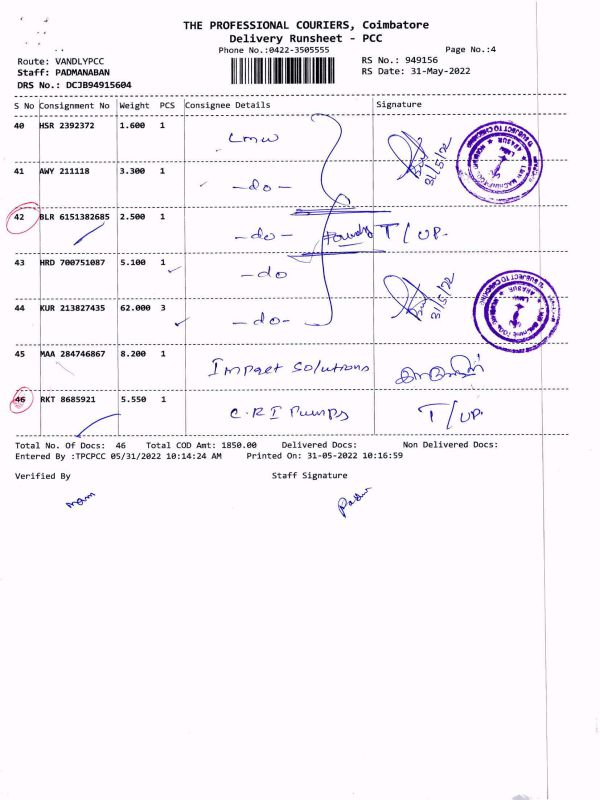 THE PROFESSIONAL COURIERS, Coimbatore
Delivery Runsheet - PCC
Phone No.:0422-3505555
Page No.:4
Route: VANDLYPCC
RS No.: 949156
Staff: PADMANABAN
RS Date: 31-May-2022
DRS No.: DCJB94915604
S No Consignment No Weight PCS Consignee Details Signature
40 HSR 2392372 1.600 1 LMW
31/5/22
41 AWY 211118 3.300 1 -do-
42 BLR 6151382685 2.500 1 -do- Foundry T/UP.
43 HRD 700751087 5.100 1 -do
44 KUR 213827435 62.000 3 -do-
31/5/22
45 MAA 284746867 8.200 1 Impact Solutions
46 RKT 8685921 5.550 1 C.R.I Pumps T/UP.
Total No. Of Docs: 46 Total COD Amt: 1850.00 Delivered Docs: Non Delivered Docs:
Entered By :TPCPCC 05/31/2022 10:14:24 AM Printed On: 31-05-2022 10:16:59
Verified By Staff Signature